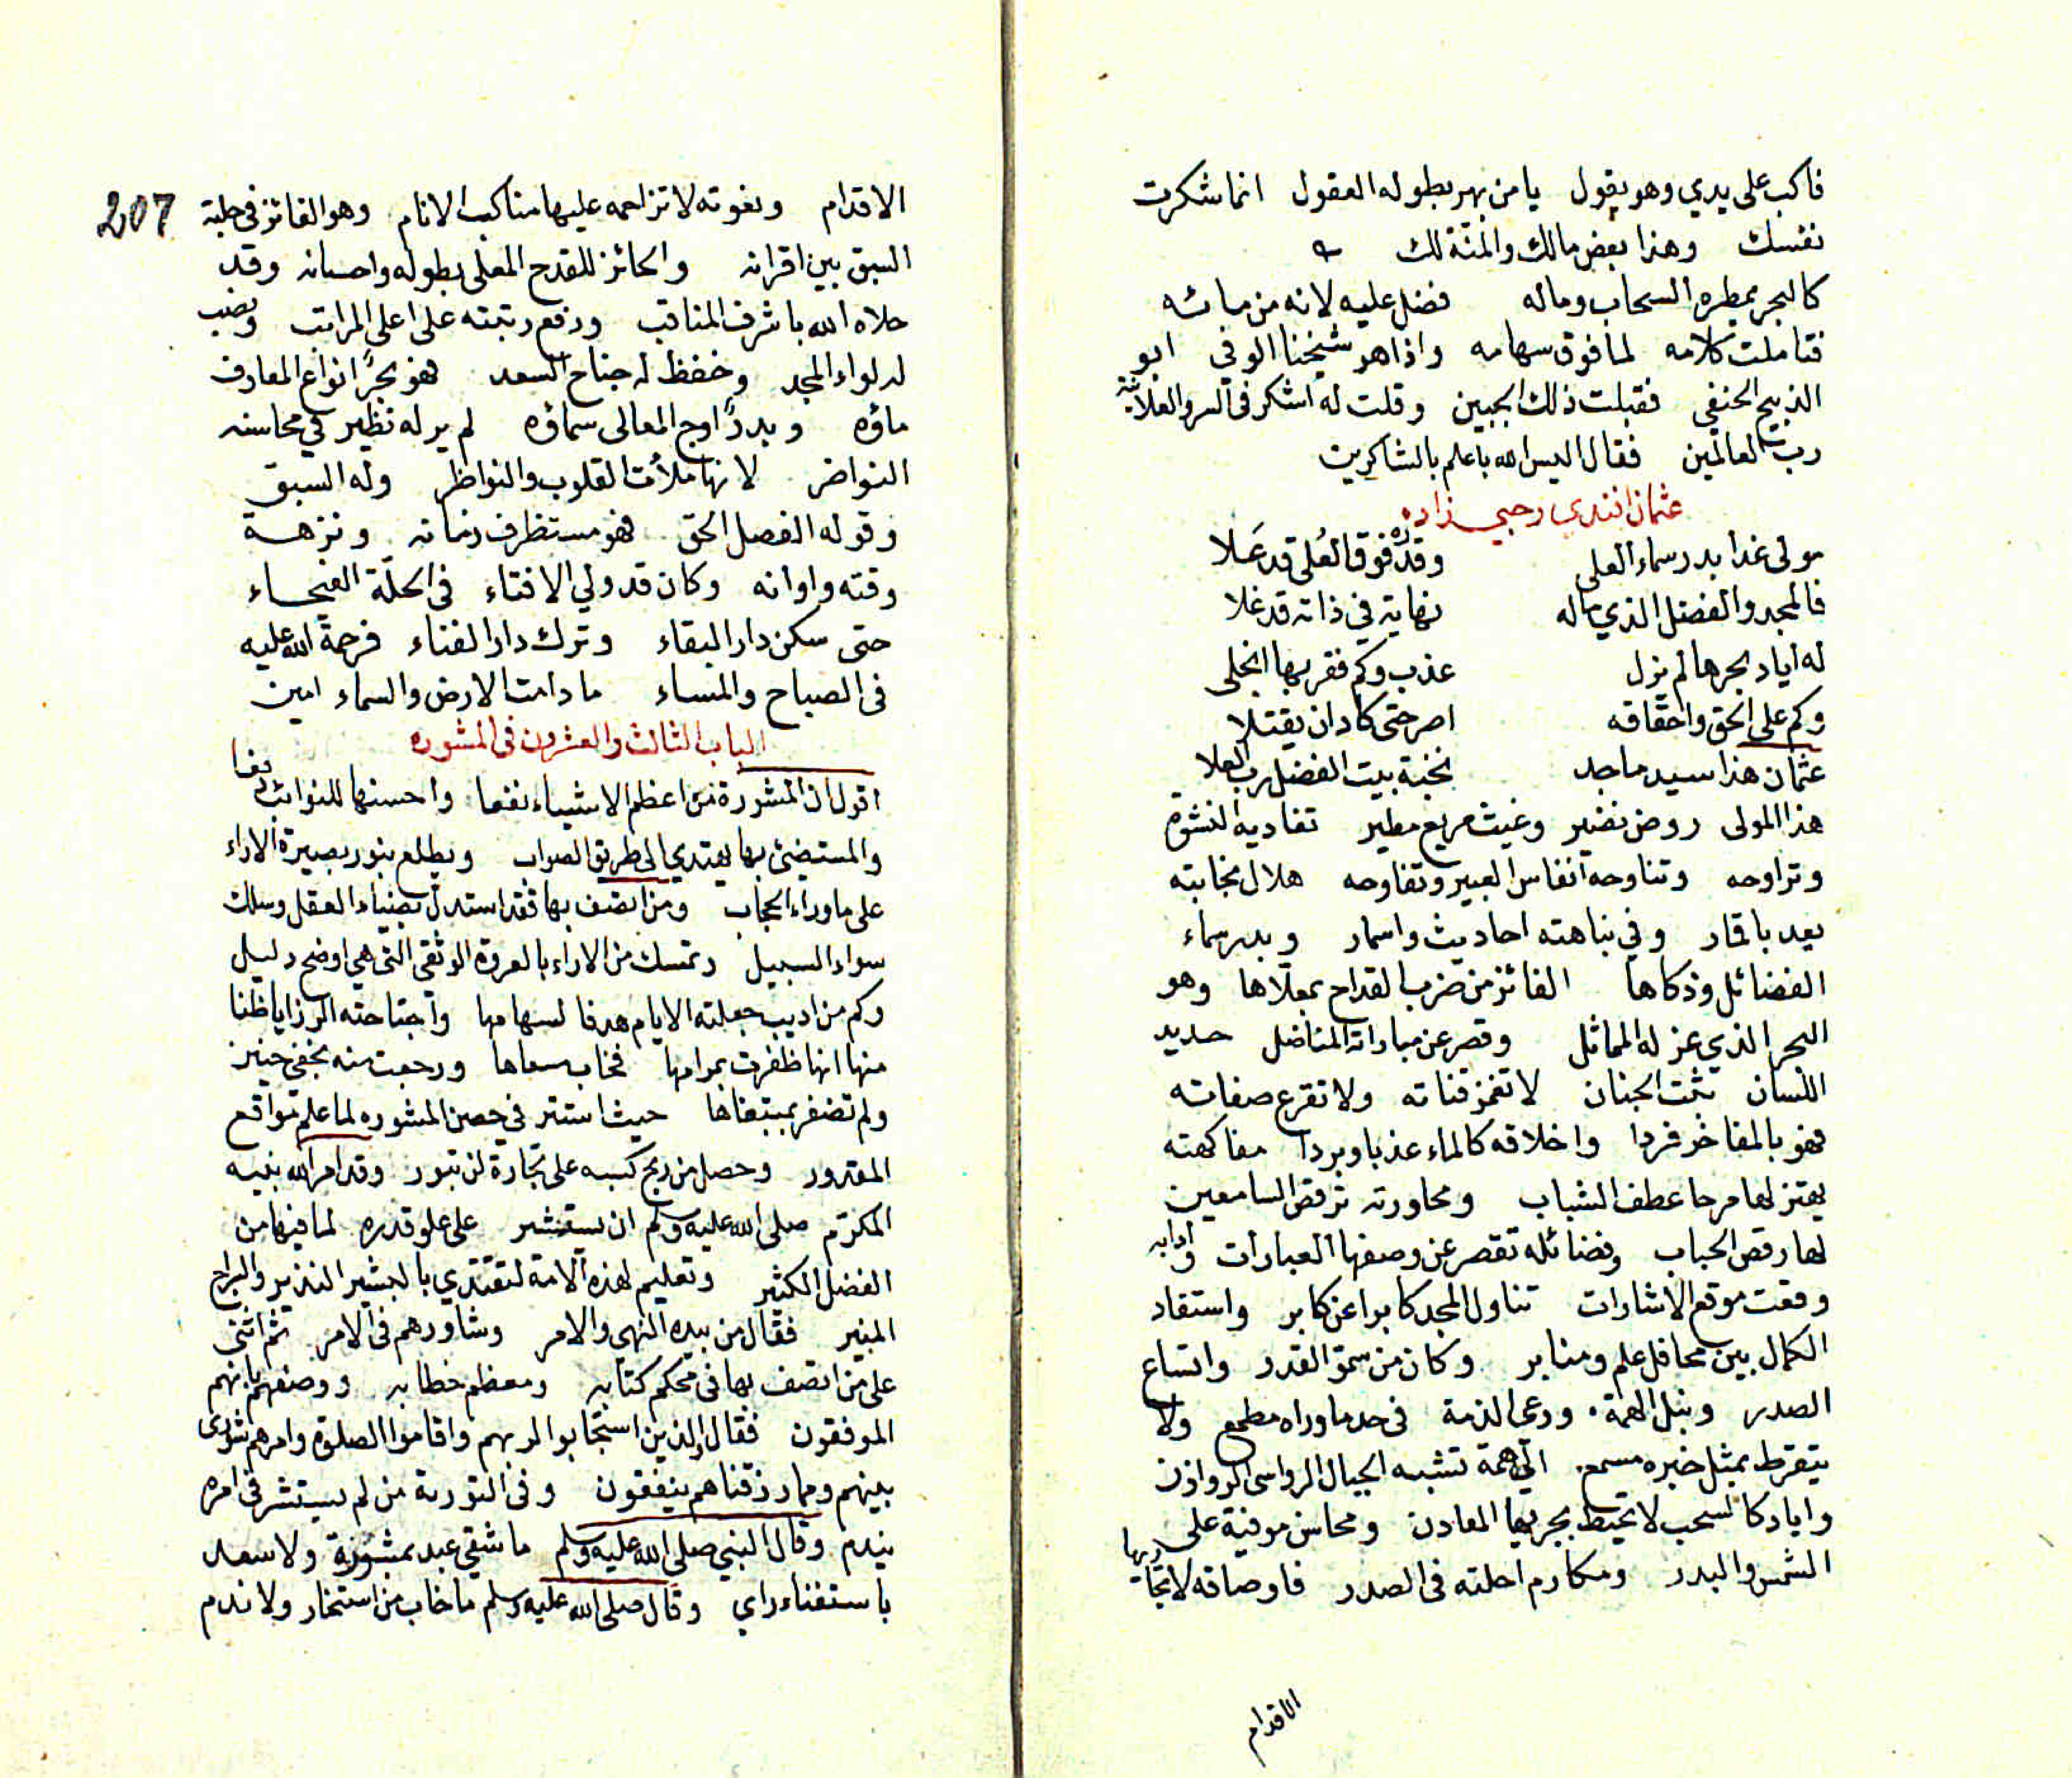 فاكب على يدي وهو يقول يا من بهر بطوله العقول انما شكرت
نفسك وهذا بعض مالك والمنّة لك
كالبحر يمطره السحاب وماله فضل عليه لانه من مائه
فتاملت كلامه لما فوق سهامه واذا هو شيخنا الوفي ابو
الذبيح الحنفي فقبلت ذلك الجبين وقلت له اشكر في السر والعلانية
رب العالمين فقال اليس الله باعلم بالشاكرين
عثمان افندي رحبي زاده
مولى غدا بدر سماء العلى وقدره فوق العُلى قد عَلا
فالمجد والفضل الذي ماله نهاية في ذاته قد غلا
له اياد بحرها لم يزل عذب وكم فقر بها انجلى
وكم على الحق واحقاقه اصر حتى كاد ان يقتلا
عثمان هذا سيد ماجد نخبة بيت الفضل رب العلا
هذا المولى روض نضير وغيث مريع مطير تغاديه النشوة
وتراوحه وتناوحه انفاس العبير وتفاوحه هلال نجابته
يعد باقمار وفي نباهته احاديث واسمار وبدر سماء
الفضائل وذكاها الفائز من ضرب القداح بمعلاها وهو
البحر الذي عز له المماثل وقصر عن مباراته المناضل حديد
اللسان ثبت الجنان لا تغمز قناته ولا تقرع صفاته
فهو بالمفاخر فردا واخلاقه كالماء عذبا وبردا مفاكهته
يهتز لها مرحا عطف الشباب ومحاورته ترقص السامعين
لها رقص الحباب وفضائله تقصر عن وصفها العبارات وادابه
وقعت موقع الاشارات تناول المجد كابرا عن كابر واستفاد
الكمال بين محافل علم ومنابر وكان من سمو القدر واتساع
الصدر ونبل الهمة ورعى الذمة في حد ما وراه مطمع ولا
يتقرط بمثل خبره مسمع الى همة تشبه الجبال الرواسى الروازن
واياد كالسحب لا تحيط بجريها المعادن ومحاسن موفية على
الشمس والبدر ومكارم احلته في الصدر فاوصافه لا تجاريها
الاقدام
207
الاقدام ونعوته لا تزاحمه عليها مناكب الانام وهو الفائز في حلبة
السبق بين اقرانه والحائز للقدح المعلى بطوله واحسانه وقد
حلاه الله باشرف المناقب ورفع رتبته على اعلى المراتب ونصب
له لواء المجد وخفظ له جناح السعد فهو بحرًا انواع المعارف
ماؤه وبدرًا اوج المعالى سماؤه لم ير له نظير في محاسنه
النواضر لانها ملأت القلوب والنواظر وله السبق
وقوله الفصل الحق فهو مستظرف زمانه ونزهة
وقته واوانه وكان قد ولي الافتاء في الحلّة الفيحاء
حتى سكن دار البقاء وترك دار الفناء فرحمة الله عليه
في الصباح والمساء ما دامت الارض والسماء امين
الباب الثالث والعشرون في المشوره
اقول ان المشورة من اعظم الاشياء نفعا واحسنها للنوائب دفعا
والمستضئ بها يهتدي الى طريق الصواب ويطلع بنور بصيرة الاراء
على ما وراء الحجاب ومن اتصف بها فقد استدل بضياء العقل وسلك
سواء السبيل وتمسك من الاراء بالعروة الوثقى التي هي اوضح دليل
وكم من اديب جعلته الايام هدفا لسهامها واجتاحته الرزايا ظنا
منها انها ظفرت بمرامها فخاب مسعاها ورجعت منه بخفي حنين
ولم تضفر بمبتغاها حيث استتر في حصن المشوره لما علم مواقع
المقدور وحصل من ربح كسبه على تجارة لن تبور وقد امر الله نبيه
المكرّم صلى الله عليه وسلم ان يستشير على علو قدره لما فيها من
الفضل الكثير وتعليم لهذه الامة لتقتدي بالبشير النذير والسراج
المنير فقال من بيده النهي والامر وشاورهم في الامر ثم اثنى
على من اتصف بها في محكم كتابه ومعظم خطابه ووصفهم بانهم
الموفقون فقال والذين استجابوا لربهم واقاموا الصلوة وامرهم شورى
بينهم ومما رزقناهم ينفقون وفي التورية من لم يستشر في امره
يندم وقال النبي صلى الله عليه وسلم ما شقي عبد بمشورة ولا سعد
باستغناء راي وقال صلى الله عليه وسلم ما خاب من استخار ولا ندم